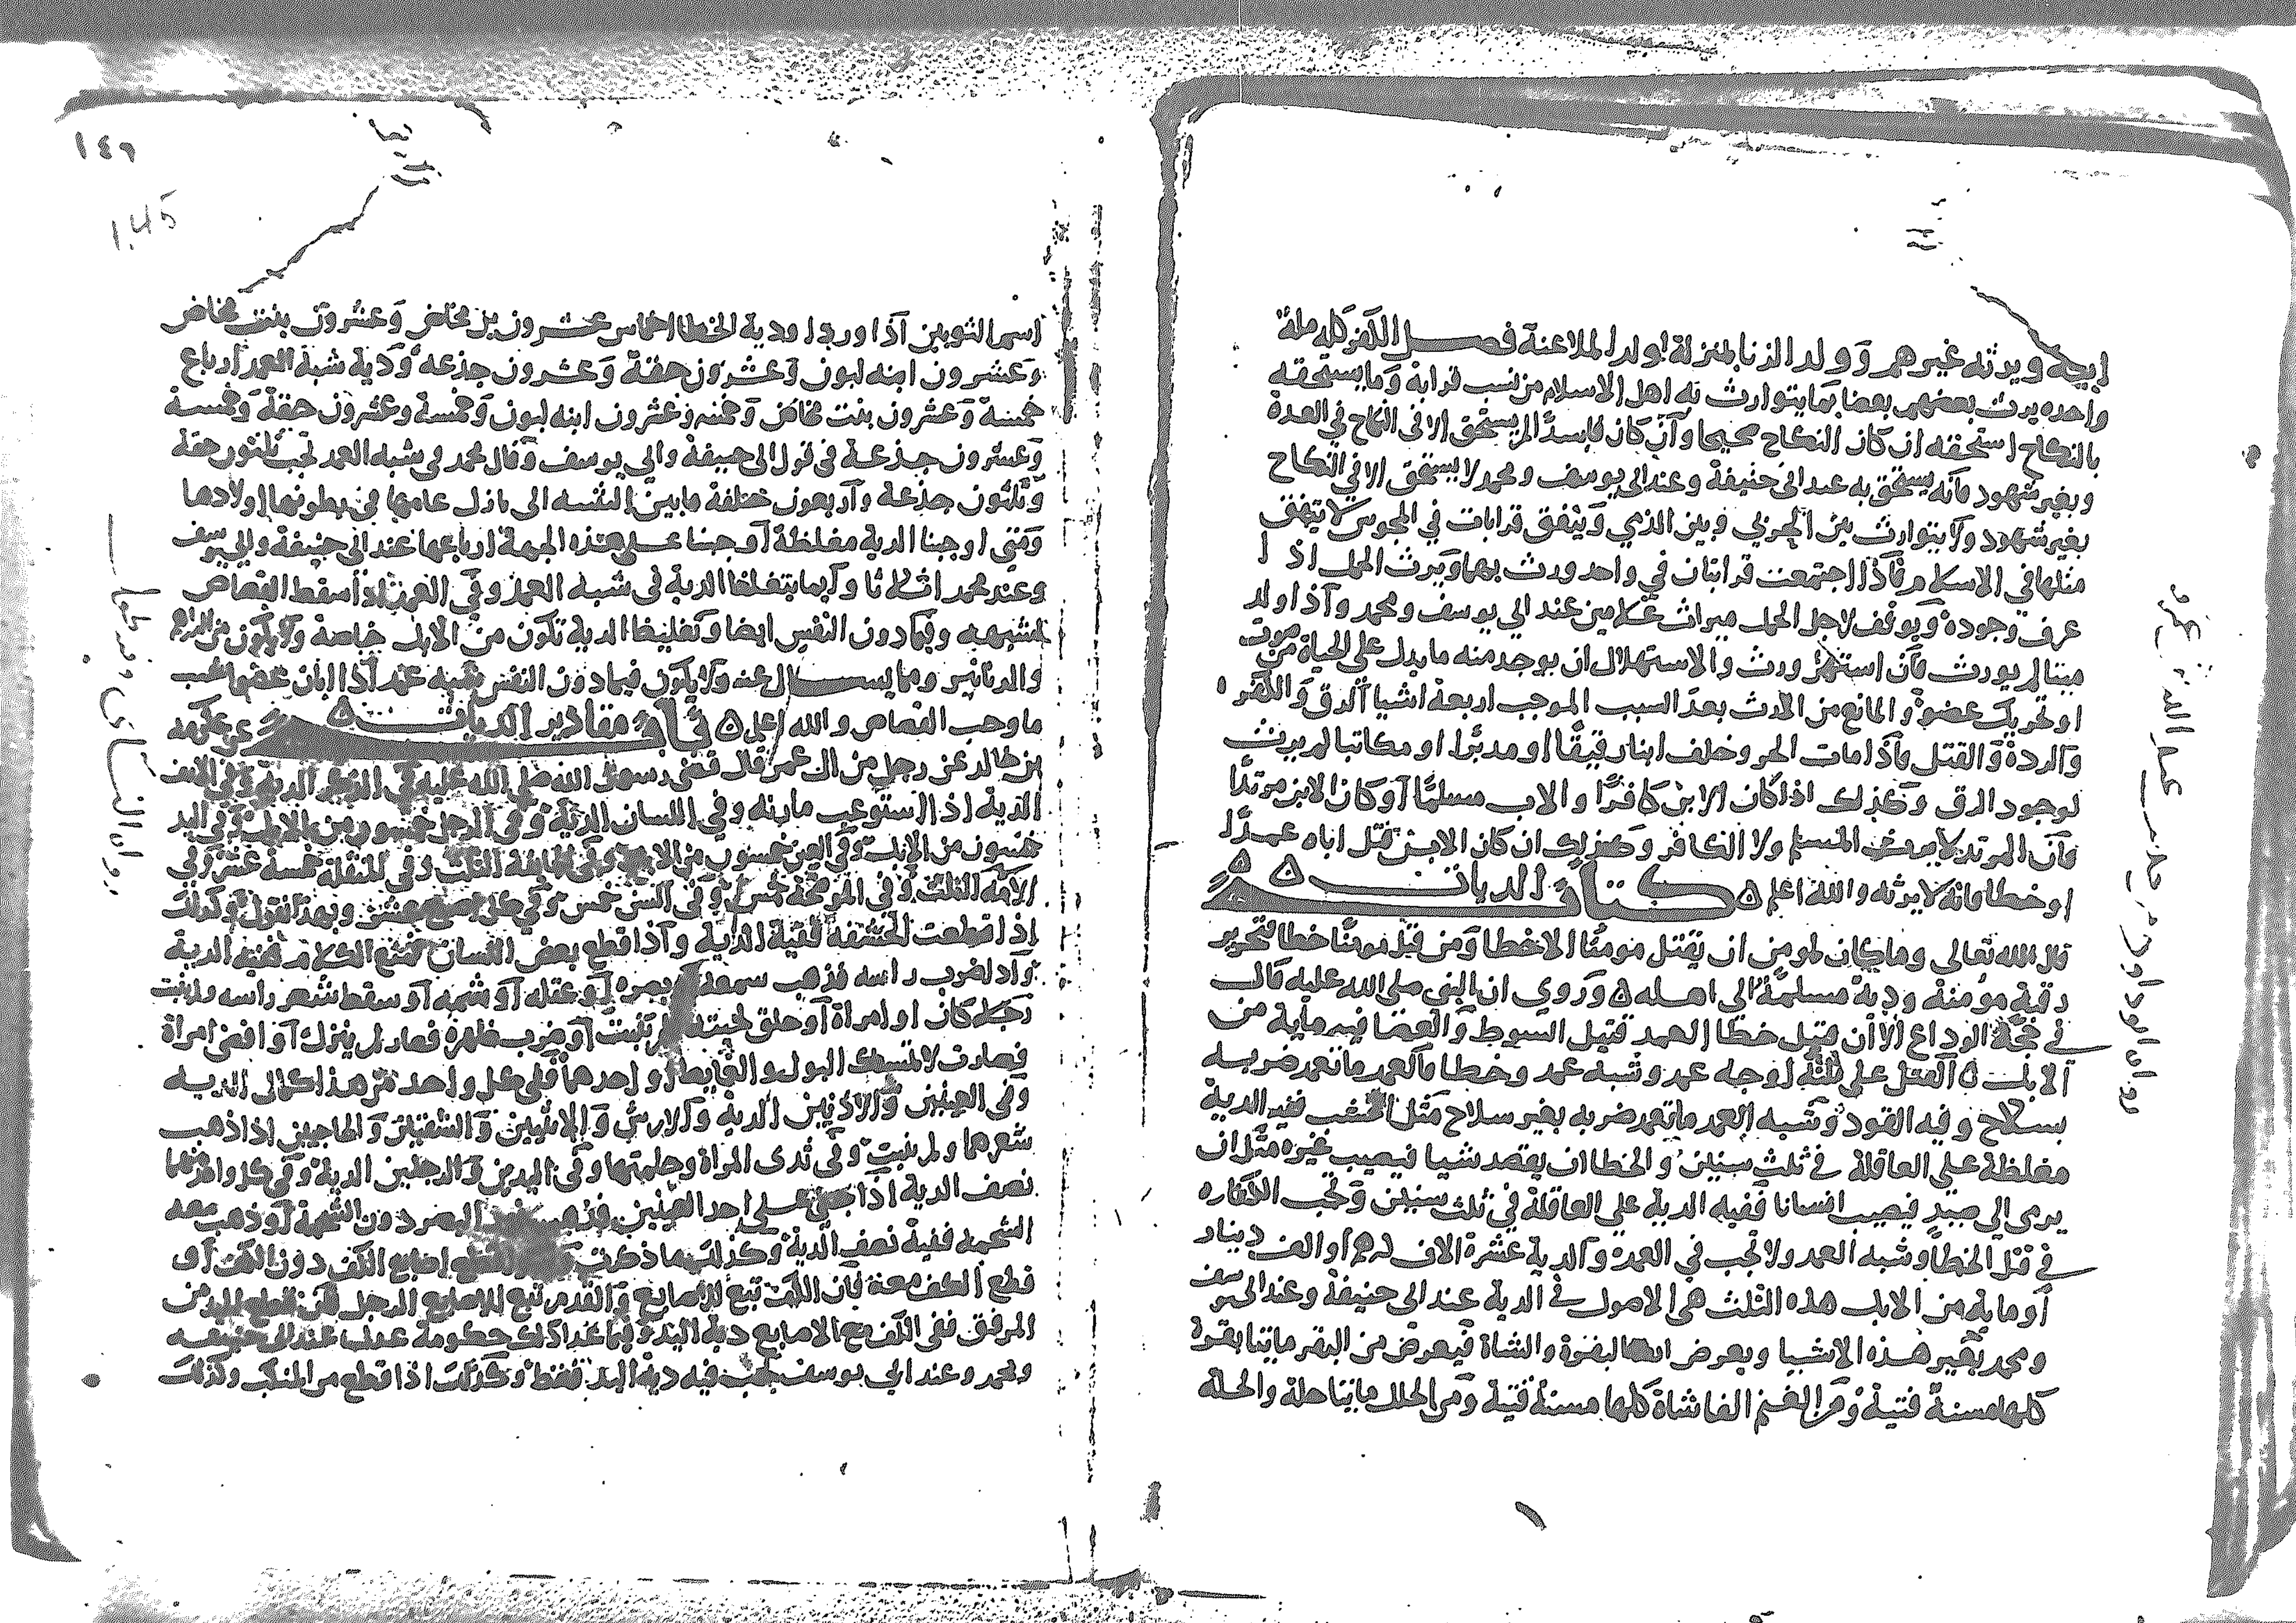 ابيه ويرثه غيرهم وولد الزنا بمنزلة ولد الملاعنة فصل الكفر كله ملة
واحده يرث بعضهم بعضا بما يتوارث به اهل الاسلام من نسب قرابة وما يستحقه
بالنكاح استحقه ان كان النكاح صحيحا وان كان فاسدا لم يستحق الا في النكاح في العدة
وبغير شهود فانه يستحق به عند ابي حنيفة وعند ابي يوسف ومحمد لا يستحق الا في النكاح
بغير شهود ولا يتوارث بين الحربي وبين الذمي ويتفق قرابات في المجوس لا يتفق
مثلها في الاسلام فاذا اجتمعت قرابتان في واحد ورث بهما ويرث الحمل اذا
عرف وجوده ويوقف لاجل الحمل ميراث غلامين عند ابي يوسف ومحمد واذا ولد
ميتا لم يورث فان استهل ورث والاستهلال ان يوجد منه ما يدل على الحياة من صوت
او تحريك عضو والمانع من الارث بعد السبب الموجب اربعة اشيا الرق والكفر
والردة والقتل فاذا مات الحر وخلف ابنا رقيقا او مدبرا او مكاتبا لم يرث
لوجود الرق وكذلك اذا كان الابن كافرا والاب مسلما او كان الابن مرتدا
فان المرتد لا يرث المسلم ولا الكافر وكذلك ان كان الابن قتل اباه عمدا
او خطا فانه لا يرثه والله اعلم كتاب الديات
قال الله تعالى وما كان لمومن ان يقتل مومنا الا خطا ومن قتل مومنا خطا فتحرير
رقبة مؤمنة ودية مسلمة الى اهله وروي ان النبي صلى الله عليه قال
في حجة الوداع الا ان قتيل خطا العمد قتيل السوط والعصا فيه ماية من
الابل القتل على ثلثة اوجه عمد وشبه عمد وخطا فالعمد ما تعمد ضربه
بسلاح وفيه القود وشبه العمد ما تعمد ضربه بغير سلاح مثل الخشب ففيه الدية
مغلظة على العاقلة في ثلث سنين والخطا ان يقصد شيا فيصيب غيره مثل ان
يرمى الى صيد فيصيب انسانا ففيه الدية على العاقلة في ثلث سنين وتجب الكفاره
في قتل الخطا وشبه العمد ولا تجب في العمد والدية عشرة الاف درهم او الف دينار
او ماية من الابل هذه الثلث هي الاصول في الدية عند ابي حنيفة وعند ابي يوسف
ومحمد بغير هذه الاشيا وبعرض البقرة والشاة فيعرض من البقر مايتا بقرة
كلها مسنة فتية ومن الغنم الفا شاة كلها مسنة فتية ومن الحلل مايتا حلة والحلة
رواه ابو داود
١٤٩
145
اسم الثوبين اذا وردا ودية الخطا اخماس عشرون بن مخاض وعشرون بنت مخاض
وعشرون ابنه لبون وعشرون حقة وعشرون جذعه ودية شبه العمد ارباع
خمسة وعشرون بنت مخاض وخمسه وعشرون ابنه لبون وخمسة وعشرون حقة وخمسة
وعشرون جذعة في قول ابي حنيفة وابي يوسف وقال محمد في شبه العمد تجب ثلثون حقة
وثلثون جذعة واربعون خلفة ما بين الثنيه الى بازل عامها في بطونها اولادها
ومتى اوجبنا الدية مغلظة اوجبنا على هذه الجهة ارباعها عند ابي حنيفة وابي يوسف
وعند محمد اثلاثا وانما يتغلظ الدية في شبه العمد وفي العمد اذا سقط القصاص
لشبهه وفيما دون النفس ايضا وتغليظ الدية تكون من الابل خاصة ولا يكون من الدراهم
والدنانير ومما يسال عنه ولا يكون فيما دون النفس شبه عمد اذا ابان عضوا يجب
ما وجب القصاص والله اعلم باب مقادير الديات عن عكرمه
بن خالد عن رجل من ال عمر قال قضى رسول الله صلى الله عليه في الذكر الدية وفي الانف
الدية اذا استوعب مارنه وفي اللسان الدية وفي الرجل خمسون من الابل وفي اليد
خمسون من الابل وفي العين خمسون من الابل وفي الجايفة الثلث وفي المنقلة خمسة عشر وفي
الامه الثلث وفي الموضحة خمس وفي السن خمس وفي كل اصبع عشر وبهذا نقول وكذلك
اذا قطعت الحشفة ففيه الدية واذا قطع بعض اللسان فمنع الكلام ففيه الدية
واذا ضرب راسه فذهب سمعه او بصره او عقله او شمه او سقط شعر راسه ولم ينبت
رجلا كان او امراة او حلق لحيته فلم تنبت او ضرب ظهره فصار لم ينزل او افضى امراة
فصارت لا تمسك البول والغايط او احدهما ففي كل واحد من هذا كمال الديه
وفي العينين والاذنين الدية والانثيين والشفتين والحاجبين اذا ذهب
شعرهما ولم ينبت وفي ثدى المراة وحلمتها وفي اليدين والرجلين الدية وفي كل واحد منهما
نصف الدية اذا جنى على احد العينين فذهب البصر دون الشحمة او ذهب معه
الشحمه ففيه نصف الدية وكذلك ما ذكرت قطع اصابع الكف دون الكف او
قطع الكف معه فان الكف تبع للاصابع والقدم تبع لاصابع الرجل فان قطع اليد من
المرفق ففي الكف مع الاصابع دية اليد وفيما عدا ذلك حكومة عدل عند ابي حنيفه
ومحمد وعند ابي يوسف يجب فيه دية اليد فقط وكذلك اذا قطع من المنكب وكذلك
رواه النسائي